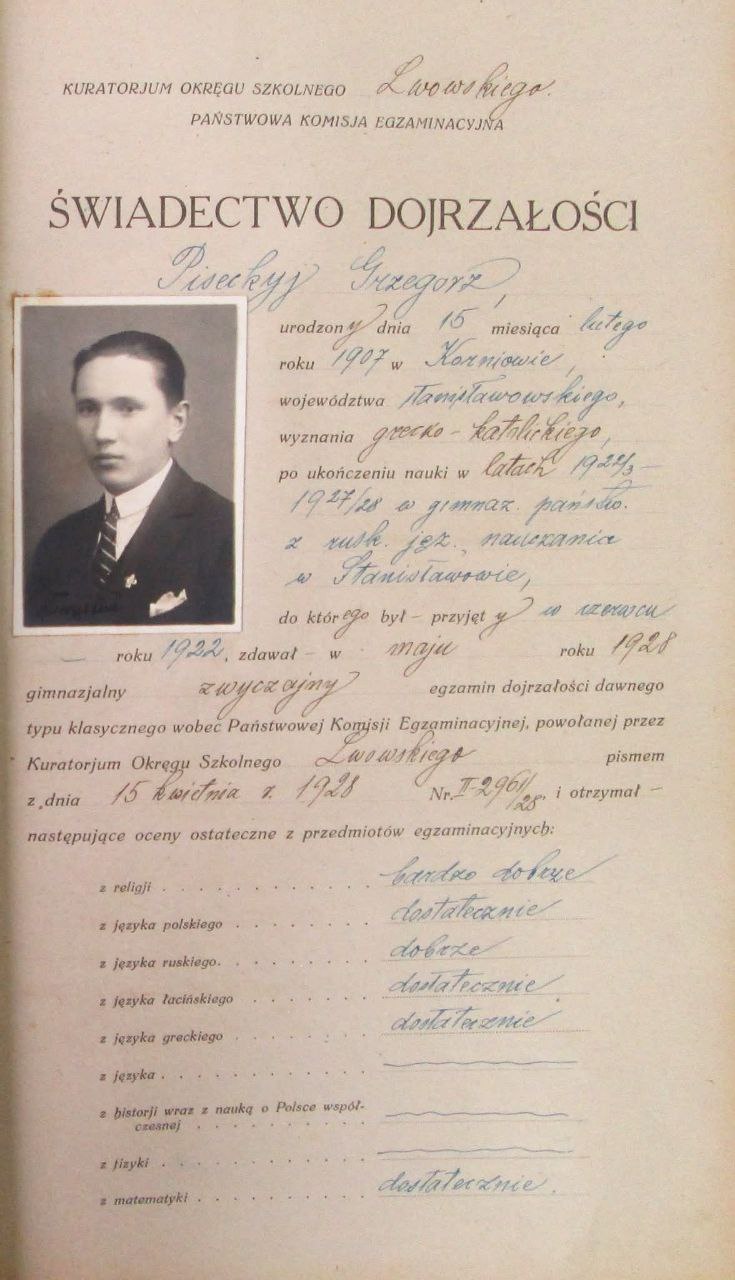 KURATORJUM OKRĘGU SZKOLNEGO Lwowskiego.
PAŃSTWOWA KOMISJA EGZAMINACYJNA
ŚWIADECTWO DOJRZAŁOŚCI
Piseckyj Grzegorz,
urodzony dnia 15 miesiąca lutego
roku 1907 w Korniowie,
województwa stanisławowskiego,
wyznania grecko-katolickiego,
po ukończeniu nauki w latach 1922/3 –
1927/28 w gimnaz. państw.
z rusk. jęz. nauczania
w Stanisławowie,
do którego był – przyjęty w czerwcu
— roku 1922, zdawał – w maju roku 1928
gimnazjalny zwyczajny egzamin dojrzałości dawnego
typu klasycznego wobec Państwowej Komisji Egzaminacyjnej, powołanej przez
Kuratorjum Okręgu Szkolnego Lwowskiego pismem
z dnia 15 kwietnia r. 1928 Nr. II-2961/28, i otrzymał –
następujące oceny ostateczne z przedmiotów egzaminacyjnych:
z religji . . . . . . . . . . . . bardzo dobrze
z języka polskiego . . . . . . . . dostatecznie
z języka ruskiego. . . . . . . . . dobrze
z języka łacińskiego . . . . . . . dostatecznie
z języka greckiego . . . . . . . . dostatecznie
z języka . . . . . . . . . . . .
z historji wraz z nauką o Polsce współ-
czesnej . . . . . . . . . .
z fizyki . . . . . . . . . . . .
z matematyki . . . . . . . . . . dostatecznie.